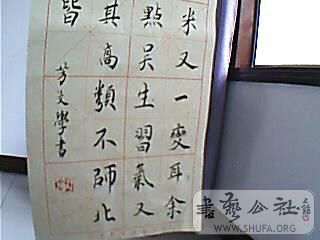 米又一變耳余
點吴生習氣又
其高類不師北
皆
芳文學書
書藝公社
WWW.SHUFA.ORG